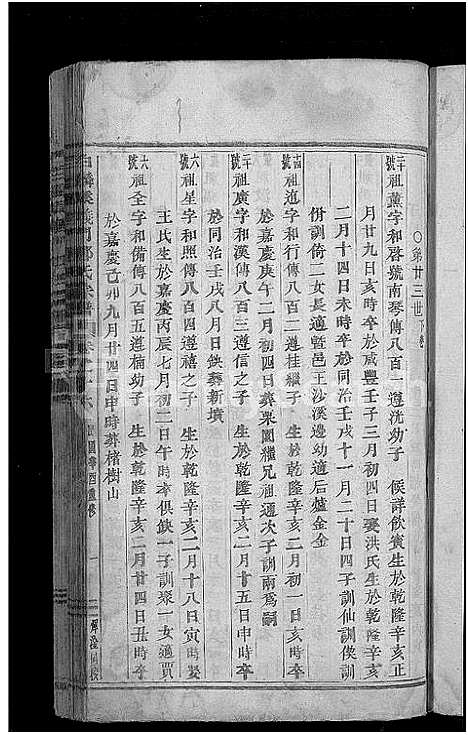 ○第廿三世
二十號祖薰字和啓號南琴傳八百一遵洗幼子 候詳飲賓生於乾隆辛亥正
月廿九日亥時卒於咸豐壬子三月初四日娶洪氏生於乾隆辛亥
二月十四日未時卒於同治壬戌十一月二十日四子訓仙訓偰訓
併訓倚二女長適暨邑王沙溪邊幼適后爐金金
祖進字和行傳八百二遵桂繼子 生於乾隆辛亥二月初一日亥時卒
於嘉慶庚午二月初四日葬眾園繼兄祖通次子訓南爲嗣
二十號祖廣字和溪傳八百三遵信之子 生於乾隆辛亥二月十五日申時卒
於同治壬戌八月日缺葬新墳
六號祖星字和
傳八百四遵禧之子 生於乾隆辛亥二月十八日寅時娶
王氏生於嘉慶丙辰七月初二日午時卒俱缺一子訓琛一女適賈
六號祖全字和備傳八百五遵楠幼子 生於乾隆辛亥二月廿四日丑時卒
於嘉慶己卯九月廿四日申時葬楮樹山
義門鄭氏宗譜